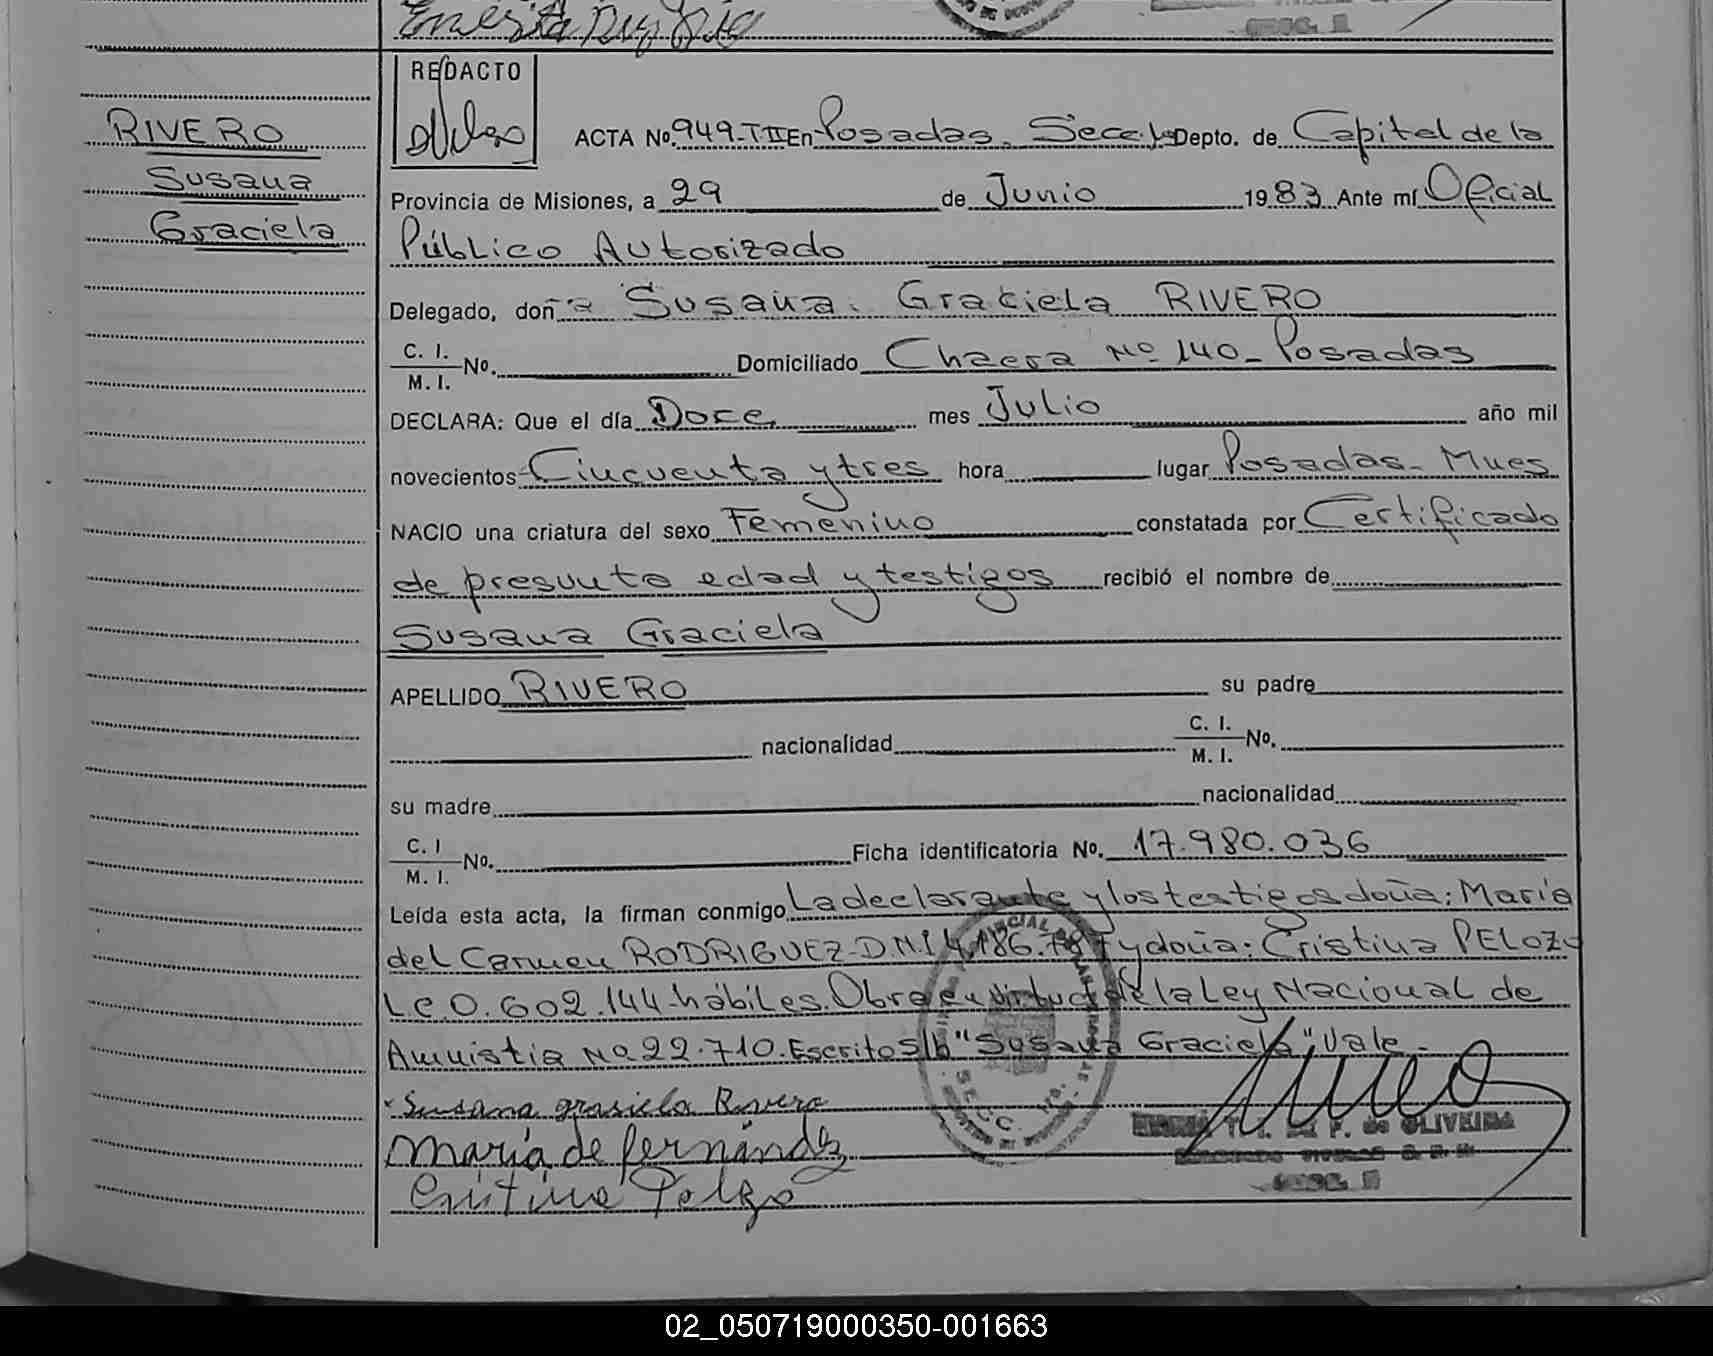 RIVERO
Susana
Graciela
REDACTO
ACTA No. 949-TII En Posadas, Secc. Depto. de Capital de la
Provincia de Misiones, a 29 de Junio 1983 Ante mí Oficial
Público Autorizado
Delegado, doña Susana Graciela RIVERO
C. I.
M. I. No. Domiciliado Chacra Nº 140- Posadas
DECLARA: Que el día Doce mes Julio año mil
novecientos Cincuenta y tres hora lugar Posadas- Mnes
NACIO una criatura del sexo Femenino constatada por Certificado
de presunta edad y testigos recibió el nombre de
Susana Graciela
APELLIDO RIVERO su padre
nacionalidad C. I.
M. I. No.
su madre nacionalidad
C. I
M. I. No. Ficha identificatoria No. 17.980.036
Leída esta acta, la firman conmigo La declarante y los testigos doña: María
del Carmen RODRIGUEZ-D.N.I y doña: Cristina PELOZO
L.C.0.602.144-hábiles. Obra en virtud de la Ley Nacional de
Amnistia No 22.710. Escrito s/b "Susana Graciela" Vale-
Susana grasiela Rivero
María de fernández
Cristina Pelozo
de OLIVEIRA
02_050719000350-001663